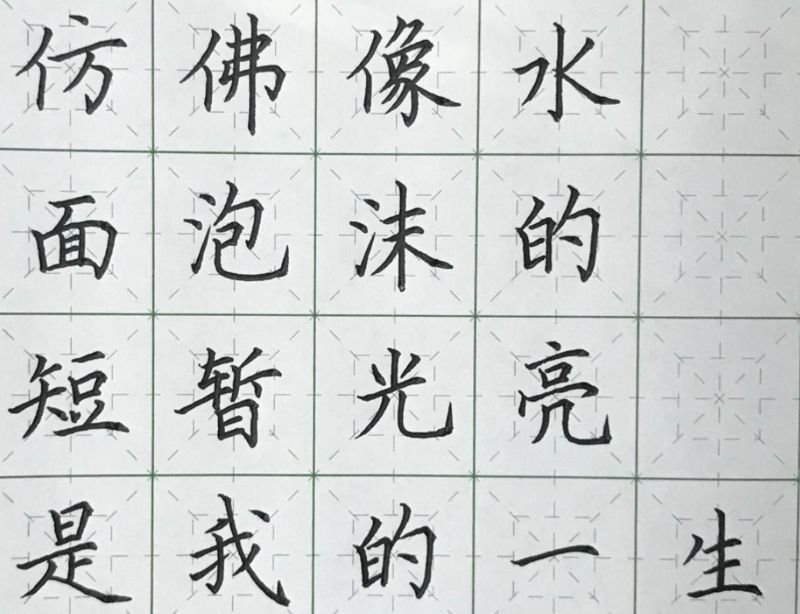 仿佛像水
面泡沫的
短暂光亮
是我的一生